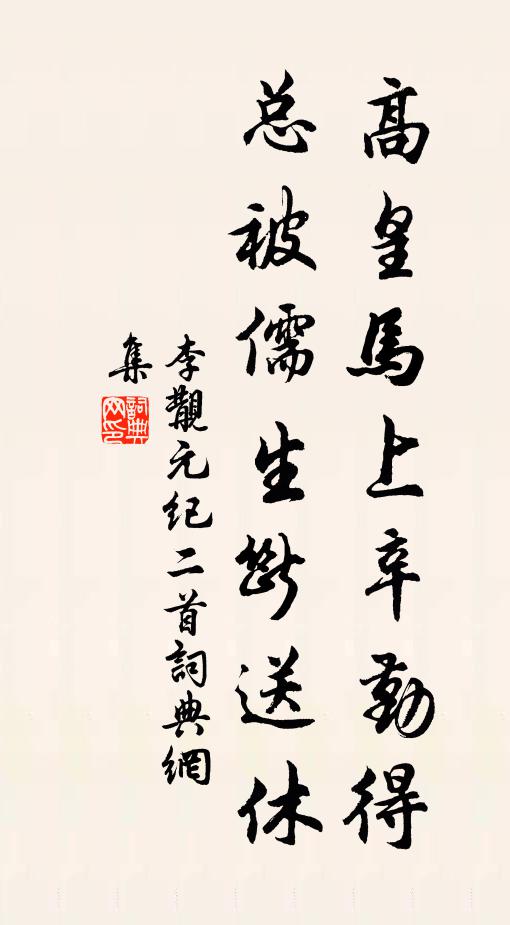 髙皇馬上辛勤得
总被儒生斷送休
李覯元纪二首詞典網
集
詞典
网印